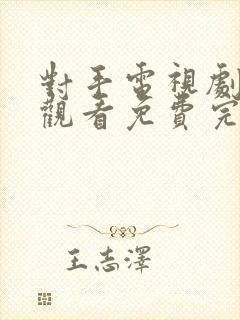 對手電視劇
觀看免費完
王志澤